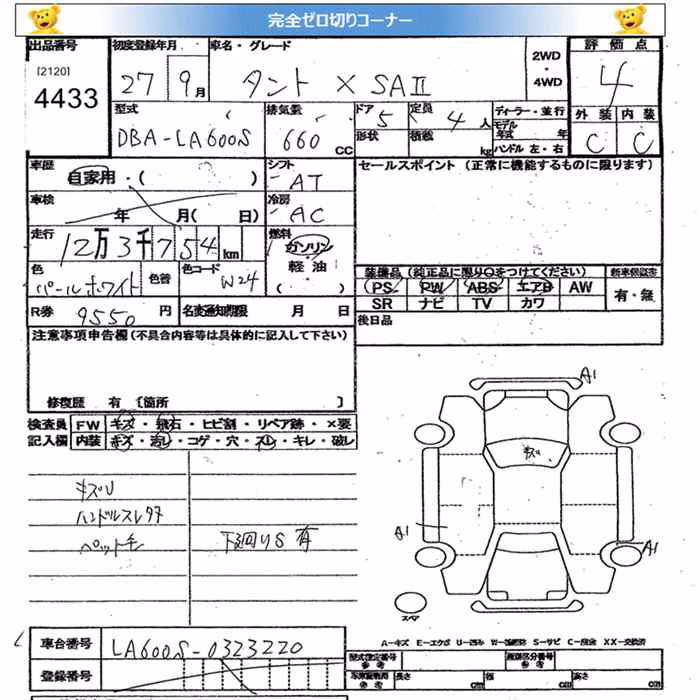 完全ゼロ切りコーナー
出品番号
[2120]
4433
初度登録年月
27 9月
車名・グレード
タント X SAⅡ
2WD
・
4WD
評価点
4
外装 内装
C C
型式
DBA-LA600S
排気量
660 CC
ドア 5
形状
定員 4 人
積載 kg
ディーラー・並行
モデル年式 年
ハンドル 左・右
車歴
自家用・( )
シフト
AT
セールスポイント (正常に機能するものに限ります)
車検
年 月( 日)
冷房
AC
走行
12万3千754km
燃料
ガソリン
軽油
( )
色
パールホワイト
色替
色コード
W24
装備品 (純正品に限り○をつけてください)
新車保証書
PS PW ABS エアB AW
有・無
SR ナビ TV カワ
R券 9550円
名変通知期限 月 日
後日品
注意事項申告欄 (不具合内容等は具体的に記入して下さい)
修復歴 有 〔箇所 〕
検査員
記入欄
FW キズ・飛石・ヒビ割・リペア跡・×要
内装 キズ・汚レ・コゲ・穴・スレ・キレ・破レ
A1
キズ
キズU
ハンドルスレ
ペット毛
下廻りS 有
A1
A1
スマ
A-キズ E-エクボ U-凹み S-サビ XX-交換済
車台番号
LA600S-0323220
登録番号
長さ cm 幅 cm 高さ cm